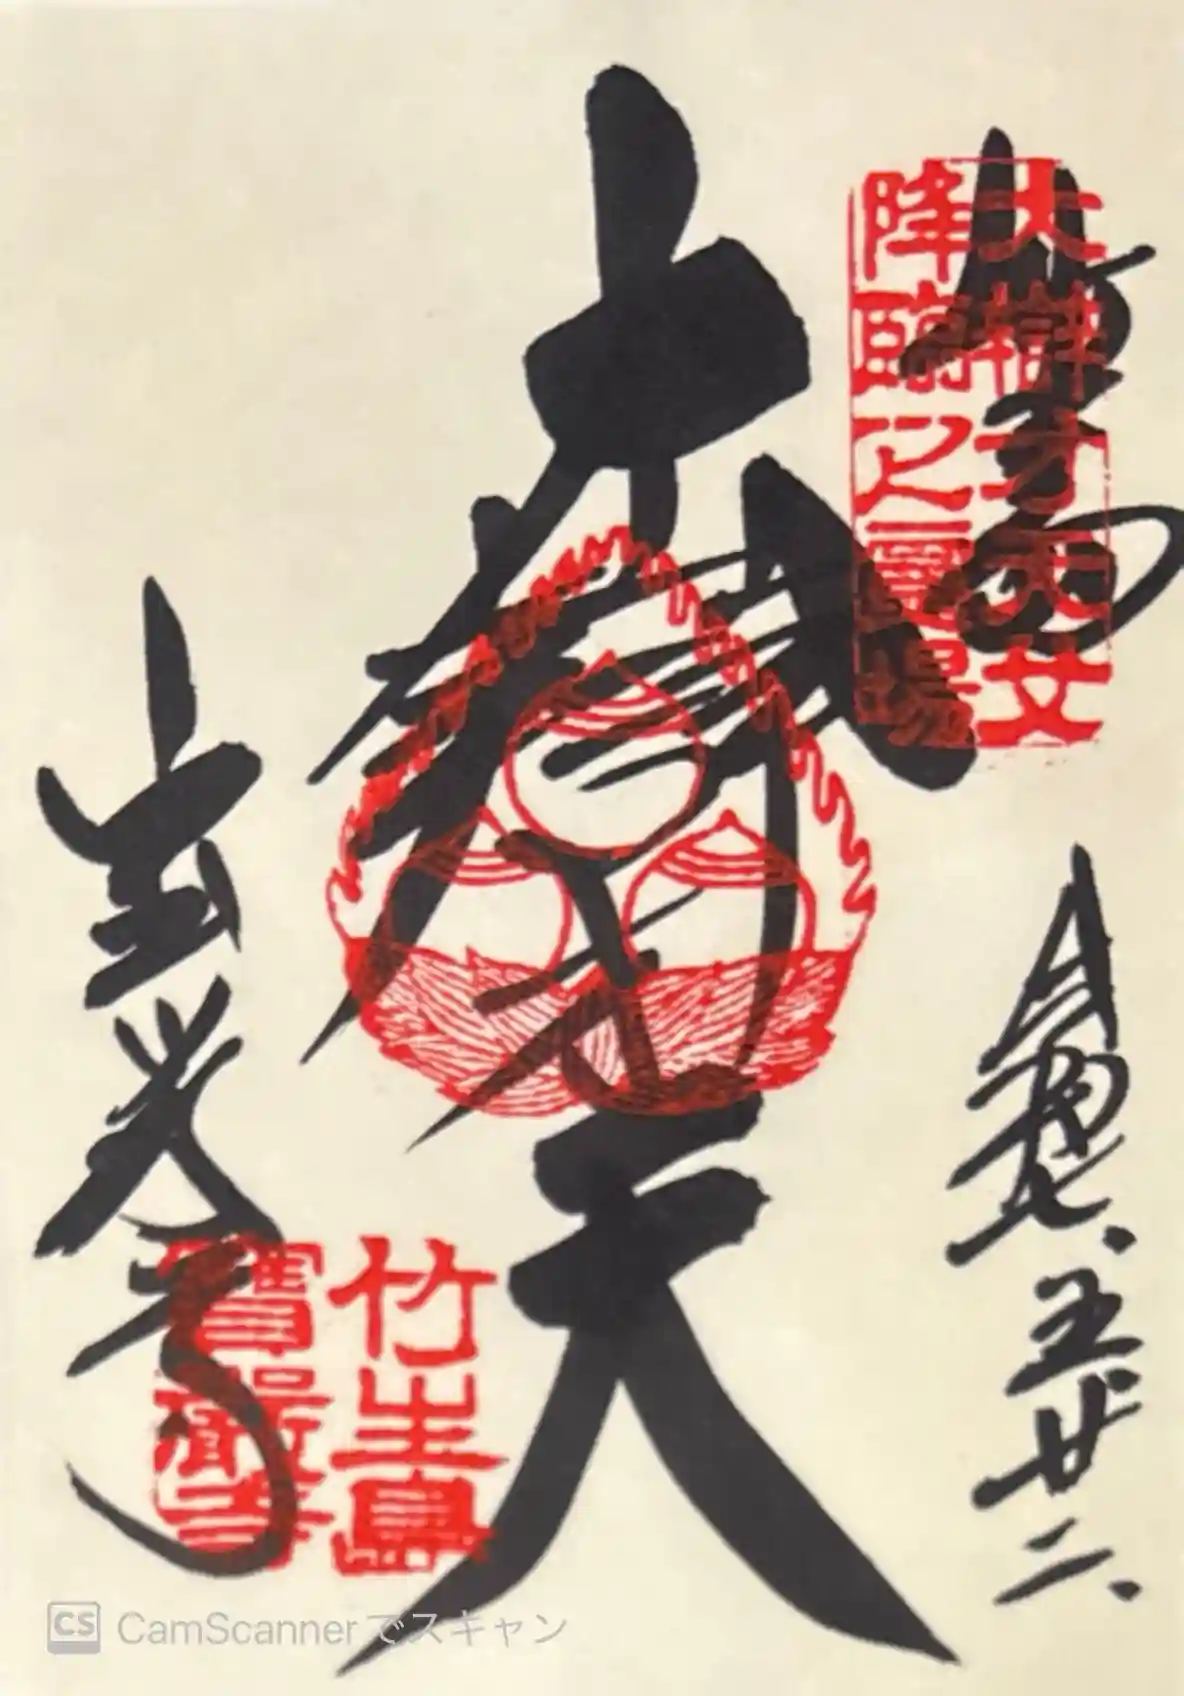 奉拝
大辯才天女
降臨之霊場
令和七、五、廿二、
大弁才天
竹生島
寶嚴寺
宝厳寺
CS CamScannerでスキャン